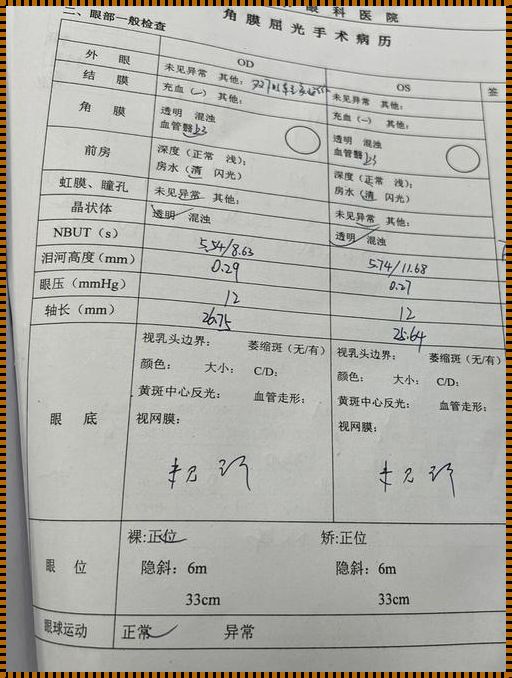 眼科医院
角膜屈光手术病历
二、眼部一般检查
OD OS 签
外 眼 未见异常 其他: 未见异常 其他:
结 膜 充血(一) 其他: 充血(一) 其他:
角 膜 透明 混浊 透明 混浊
血管翳 血管翳
前房 深度(正常 浅); 深度(正常 浅);
房水(清 闪光) 房水(清 闪光)
虹膜、瞳孔 未见异常 其他: 未见异常 其他:
晶状体 透明 混浊 透明 混浊
NBUT(s) 5.54/8.63 5.74/11.68
泪河高度(mm) 0.29 0.27
眼压(mmHg) 12 12
轴长(mm) 26.75 25.64
视乳头边界: 萎缩斑(无/有) 视乳头边界: 萎缩斑(无/有)
颜色: 大小: C/D: 颜色: 大小: C/D:
黄斑中心反光: 血管走形: 黄斑中心反光: 血管走形:
眼 底 视网膜: 视网膜:
未见 未见
裸:正位 矫:正位
眼 位 隐斜:6m 隐斜:6m
33cm 33cm
眼球运动 正常 异常